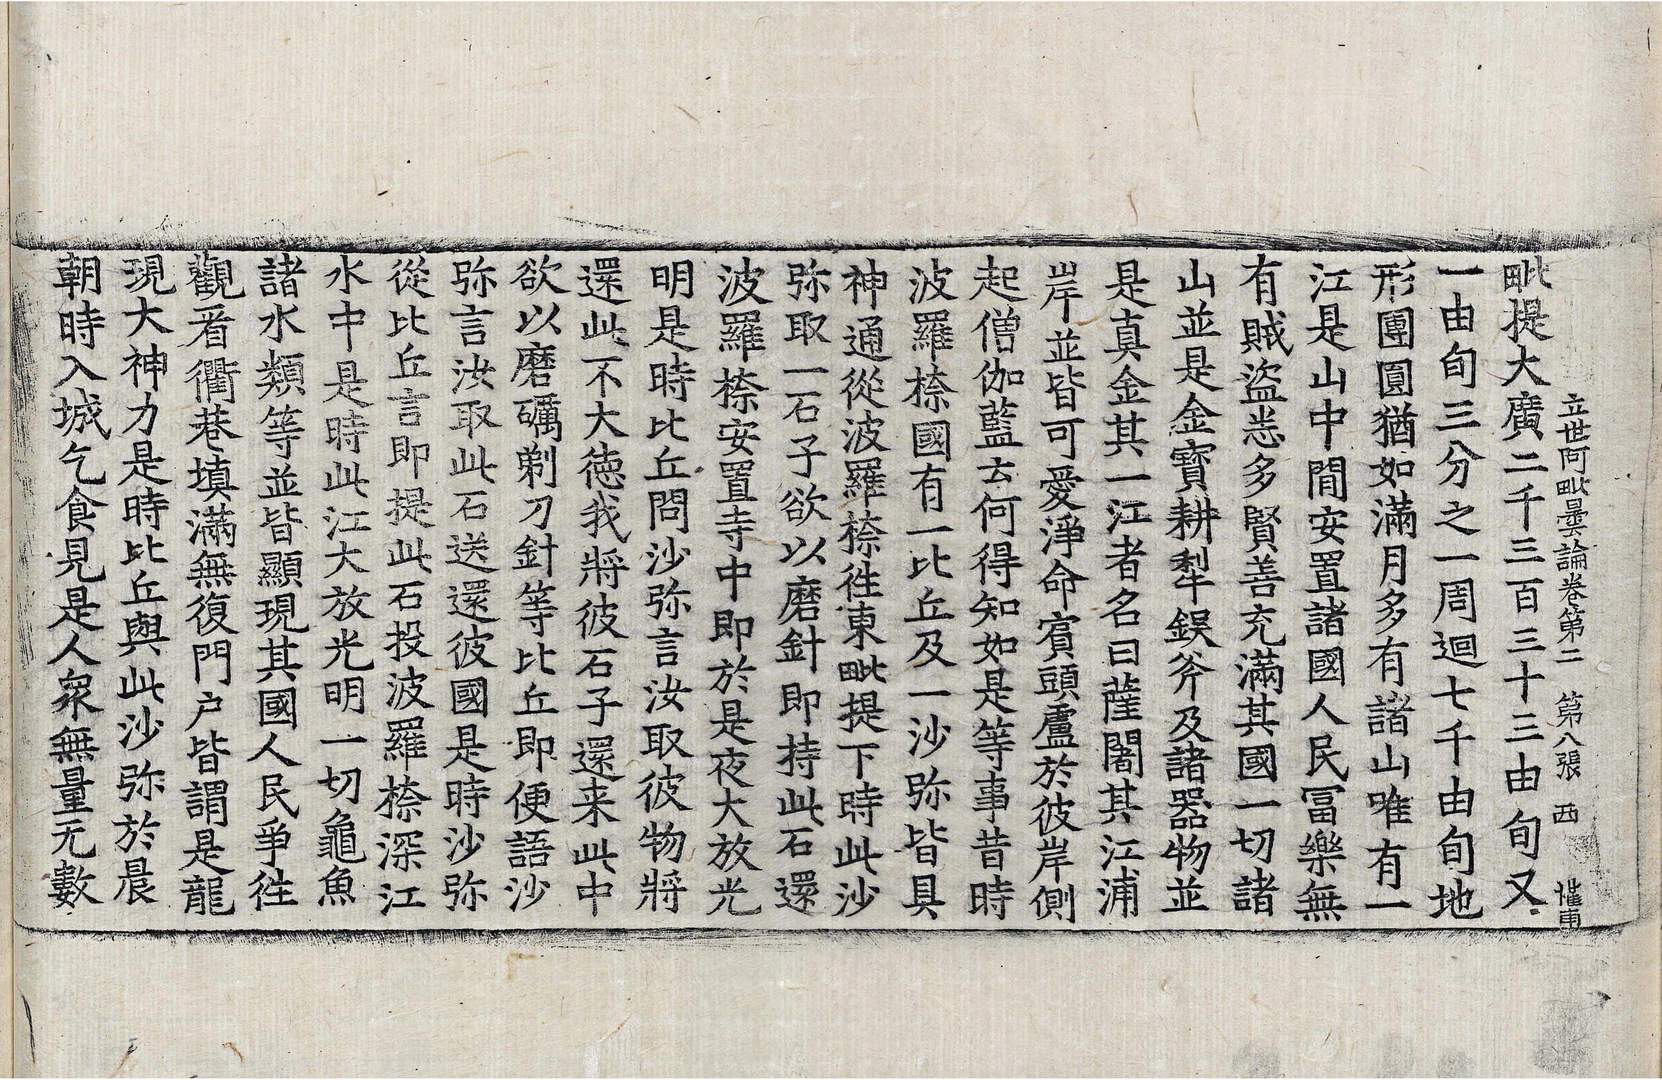 立世阿毗曇論卷第二 第八張 西
毗提大廣二千三百三十三由旬又
一由旬三分之一周迴七千由旬地
形團圓猶如滿月多有諸山唯有一
江是山中間安置諸國人民冨樂無
有賊盜恙多賢善充滿其國一切諸
山並是金寶耕犁鋘斧及諸器物並
是真金其一江者名曰薩闍其江浦
岸並皆可愛淨命賓頭盧於彼岸側
起僧伽藍云何得知如是等事昔時
波羅㮈國有一比丘及一沙弥皆具
神通從波羅㮈徃東毗提下時此沙
弥取一石子欲以磨針即持此石還
波羅㮈安置寺中即於是夜大放光
明是時比丘問沙弥言汝取彼物將
還此不大德我將彼石子還来此中
欲以磨礪剃刀針等比丘即便語沙
弥言汝取此石送還彼國是時沙弥
從比丘言即提此石投波羅㮈深江
水中是時此江大放光明一切龜魚
諸水類等並皆顯現其國人民爭徃
觀看衢巷填滿無復門户皆謂是龍
現大神力是時比丘與此沙弥於晨
朝時入城乞食見是人衆無量无數